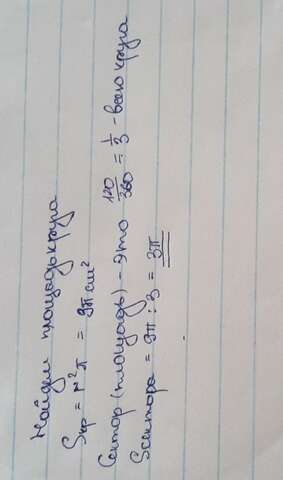 Найдем площадь круга
Sкр = r²π = 9π см²
Сектор (площадь) - это 120/360 = 1/3 - всего круга
Sсектора = 9π : 3 = 3π